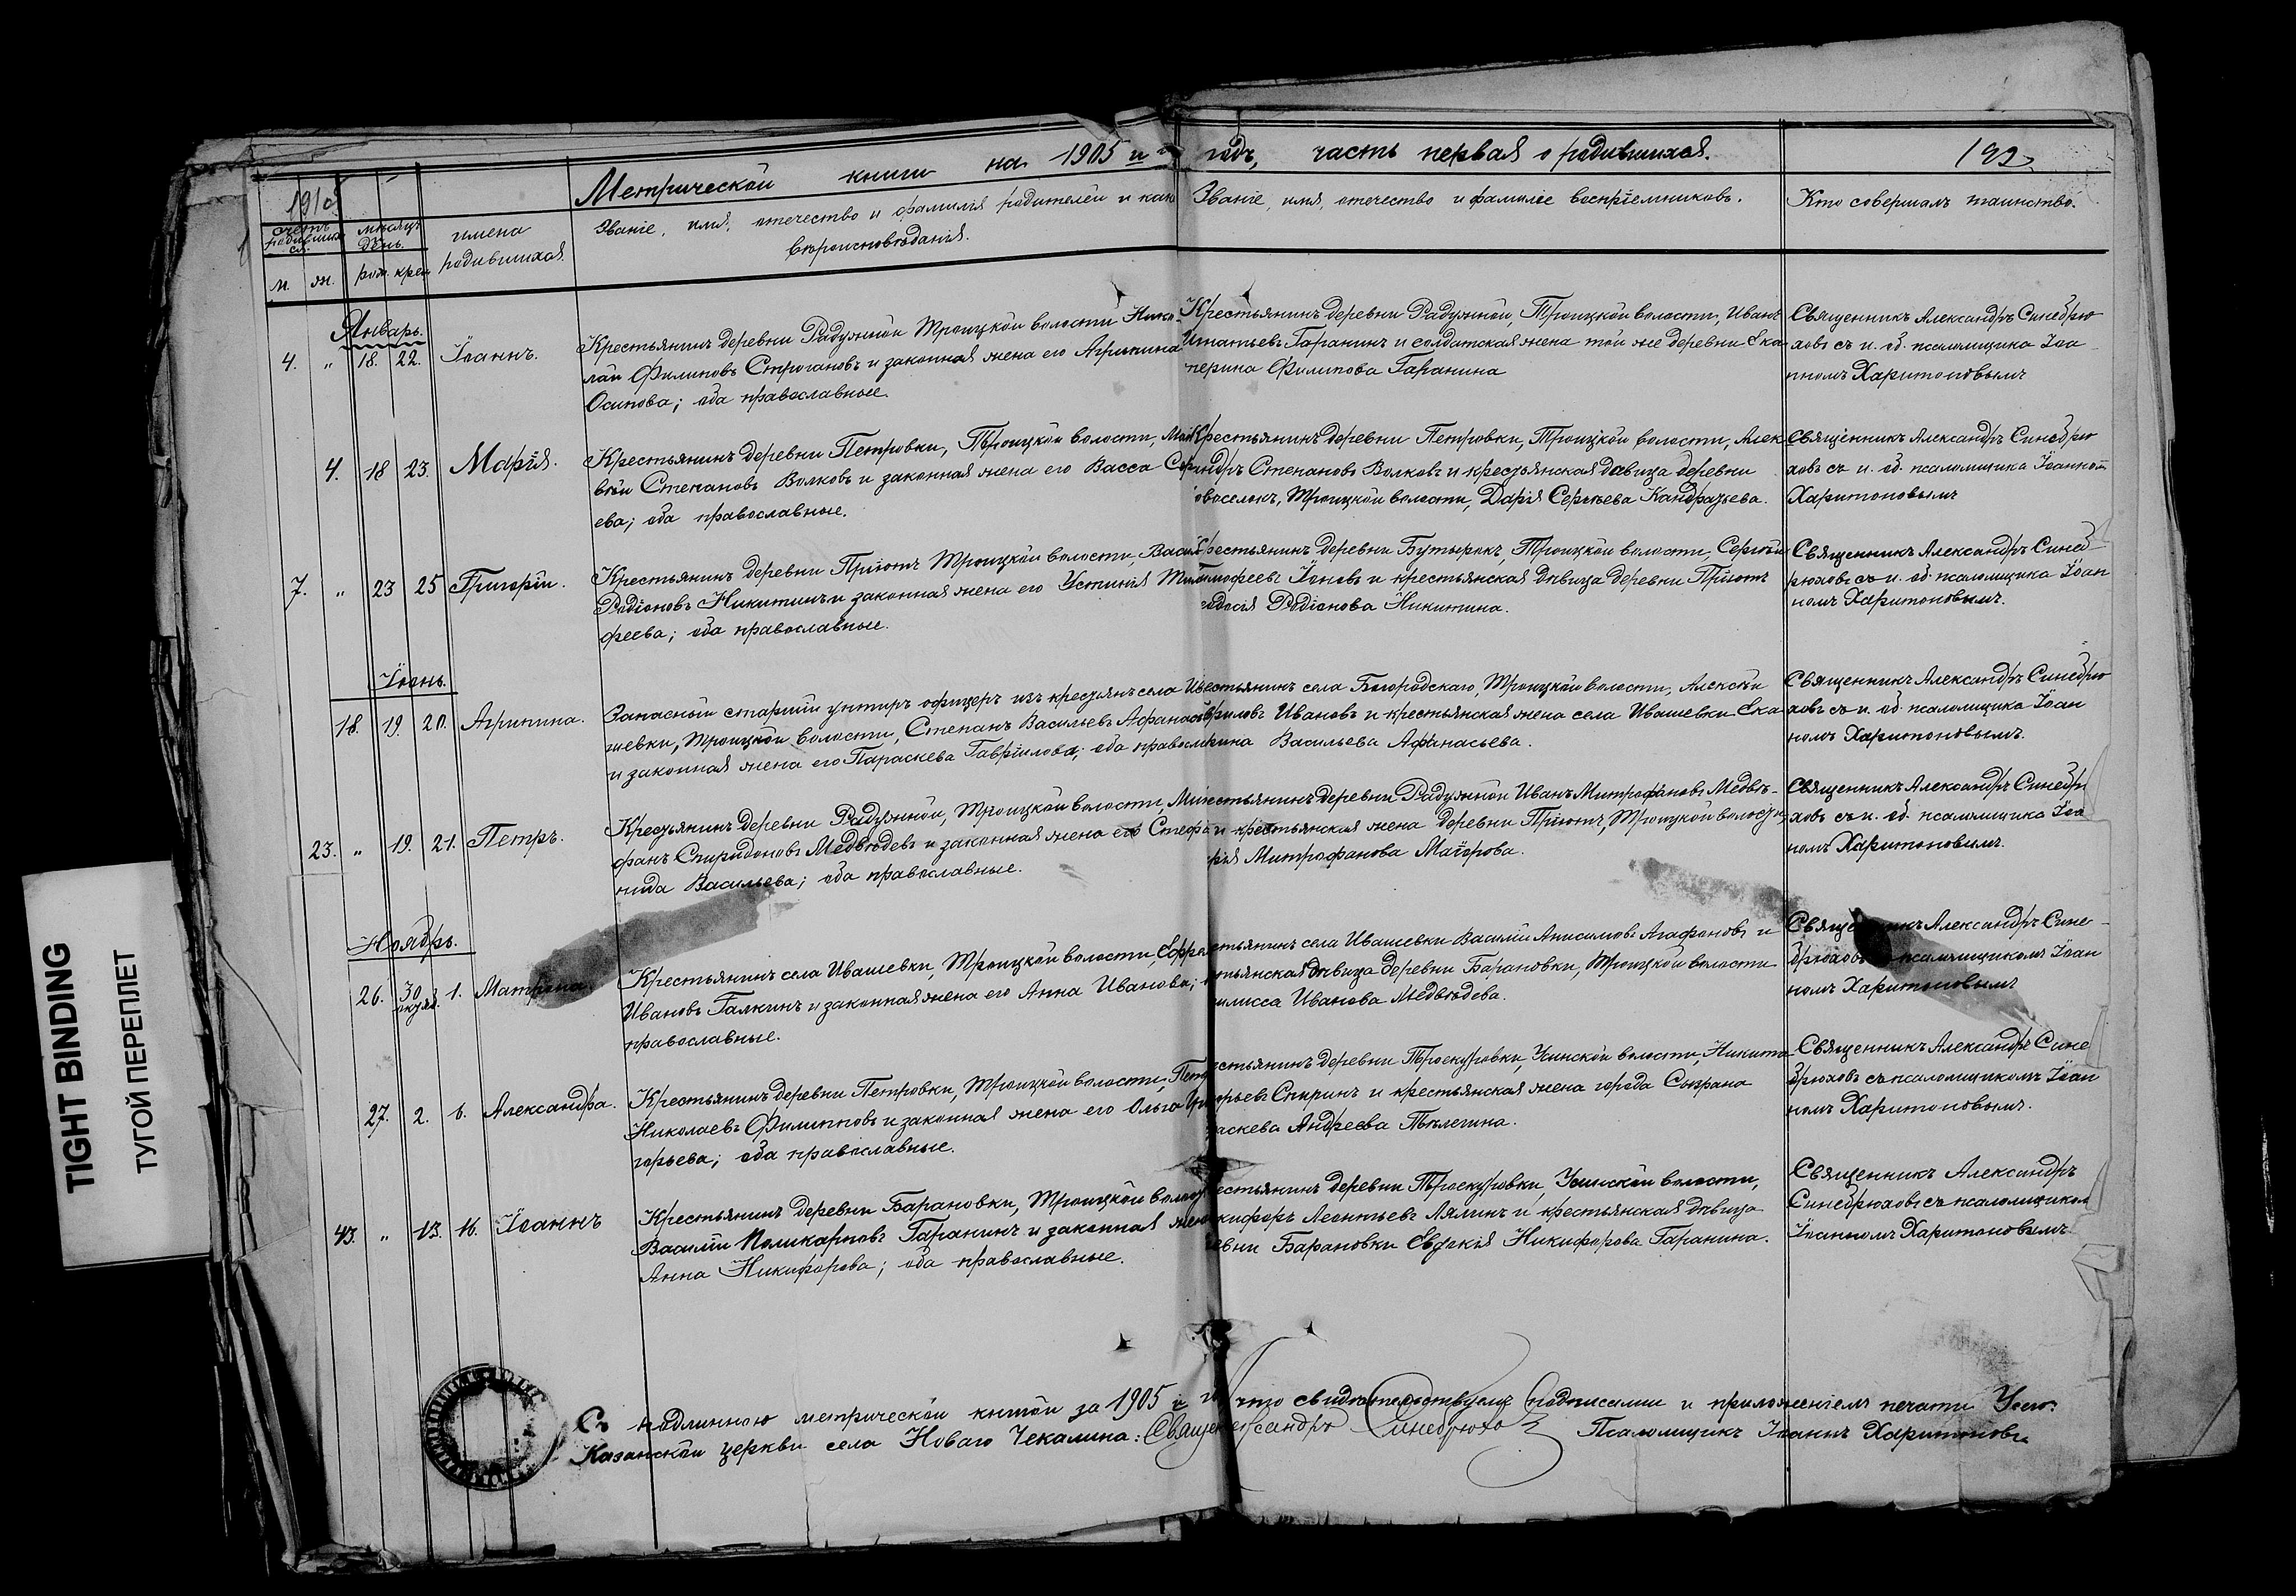 Метрической книги на 1905 и годъ, часть первая о родившихся.
192
счетъ родившихся.
мѣсяцъ день.
имена родившихся.
Званіе, имя, отечество и фамилія родителей и как
вѣроисповѣданія.
Званіе, имя, отечество и фамиліе воспріемниковъ.
Кто совершалъ таинство.
м. ж. рож. крещ
Январь.
4. " 18. 22. Іоаннъ.
Крестьянинъ деревни Радужной Троицкой волости Нико-
лай Филиповъ Строгановъ и законная жена его Агрипина
Осипова; оба православные.
Крестьянинъ деревни Радужной, Троицкой волости, Иванъ
Игнатьевъ Гаранинъ и солдатская жена той же деревни Ека
терина Филипова Гаранина
Священникъ Александръ Синебрю
ховъ съ и. об. псаломщика Іоа
нномъ Харитоновымъ
4. 18 23. Марія.
Крестьянинъ деревни Петровки, Троицкой волости, Мат
вѣй Степановъ Волковъ и законная жена его Васса Серг
ева; оба православные.
крестьянинъ деревни Петровки, Троицкой волости, Алек
андръ Степановъ Волковъ и крестьянская дѣвица деревни
овоселокъ, Троицкой волости, Дарія Сергѣева Кандратьева.
Священникъ Александръ Синебрю
ховъ съ и. об. псаломщика Іоанномъ
Харитоновымъ
7. " 23 25 Григорій.
Крестьянинъ деревни Пріютъ Троицкой волости, Васил
Родіоновъ Никитинъ и законная жена его Устинія Тимо
феева; оба православные.
рестьянинъ деревни Бутырокъ, Троицкой волости, Сергѣй
Тимофеевъ Іоновъ и крестьянская дѣвица деревни Пріютъ
едосія Родіонова Никитина.
Священникъ Александръ Синеб
рюховъ съ и. об. псаломщика Іоан
номъ Харитоновымъ.
Іюнь.
18. 19. 20. Агрипина.
Запасный старшій унтиръ офицеръ изъ крестьянъ села Ива
шевки, Троицкой волости, Степанъ Васильевъ Афанась
и законная жена его Параскева Гавріилова; оба правосл
естьянинъ села Богородскаго, Троицкой волости, Алексѣй
вриловъ Ивановъ и крестьянская жена села Ивашевки Ека
рина Васильева Афанасьева.
Священникъ Александръ Синебрю
ховъ съ и. об. псаломщика Іоан
номъ Харитоновымъ.
23. " 19. 21. Петръ.
Крестьянинъ деревни Радужной, Троицкой волости, Мит
фанъ Спиридоновъ Медвѣдевъ и законная жена его Стефа
нида Васильева; оба православные.
естьянинъ деревни Радужной Иванъ Митрофановъ Медвѣ-
и крестьянская жена деревни Пріютъ, Троицкой волости,
рія Митрофанова Маіорова.
Священникъ Александръ Синебрю
ховъ съ и. об. псаломщика Іоа
номъ Харитоновымъ.
Ноябрь.
26. 30 октяб. 1. Матрона.
Крестьянинъ села Ивашевки, Троицкой волости, Ефре
Ивановъ Галкинъ и законная жена его Анна Иванова;
православные.
стьянинъ села Ивашевки Василій Анисимовъ Агафоновъ и
тьянская дѣвица деревни Барановки, Троицкой волости
илисса Иванова Медвѣдева.
Священникъ Александръ Сине-
брюховъ псаломщикомъ Іоан
номъ Харитоновымъ
27. 2. 6. Александра.
Крестьянинъ деревни Петровки, Троицкой волости, Петр
Николаевъ Филипповъ и законная жена его Ольга Гри
горьева; оба православные.
естьянинъ деревни Проскуровки, Усинской волости, Никита
орьевъ Спиринъ и крестьянская жена города Сызрана
аскева Андреева Пѣлегина.
Священникъ Александръ Сине
брюховъ съ псаломщикомъ Іоан
номъ Харитоновымъ.
43. " 13. 16. Іоаннъ
Крестьянинъ деревни Барановки, Троицкой волос
Василій Поликарповъ Гаранинъ и законная жен
Анна Никифорова; оба православные.
естьянинъ деревни Проскуровки, Усинской волости,
кифоръ Леонтьевъ Лялинъ и крестьянская дѣвица
евни Барановки Евдокія Никифорова Гаранина.
Священникъ Александръ
Синебрюховъ съ псаломщиком
Іоанномъ Харитоновымъ
Съ подлинною метрической книгой за 1905 й что свидѣтельствуемъ подписами и приложеніемъ печати
Казанской церкви села Новаго Чекалина: Священ ександръ Синебрюхо Псаломщикъ Іоаннъ Харитоновъ
TIGHT BINDING
ТУГОЙ ПЕРЕПЛЕТ